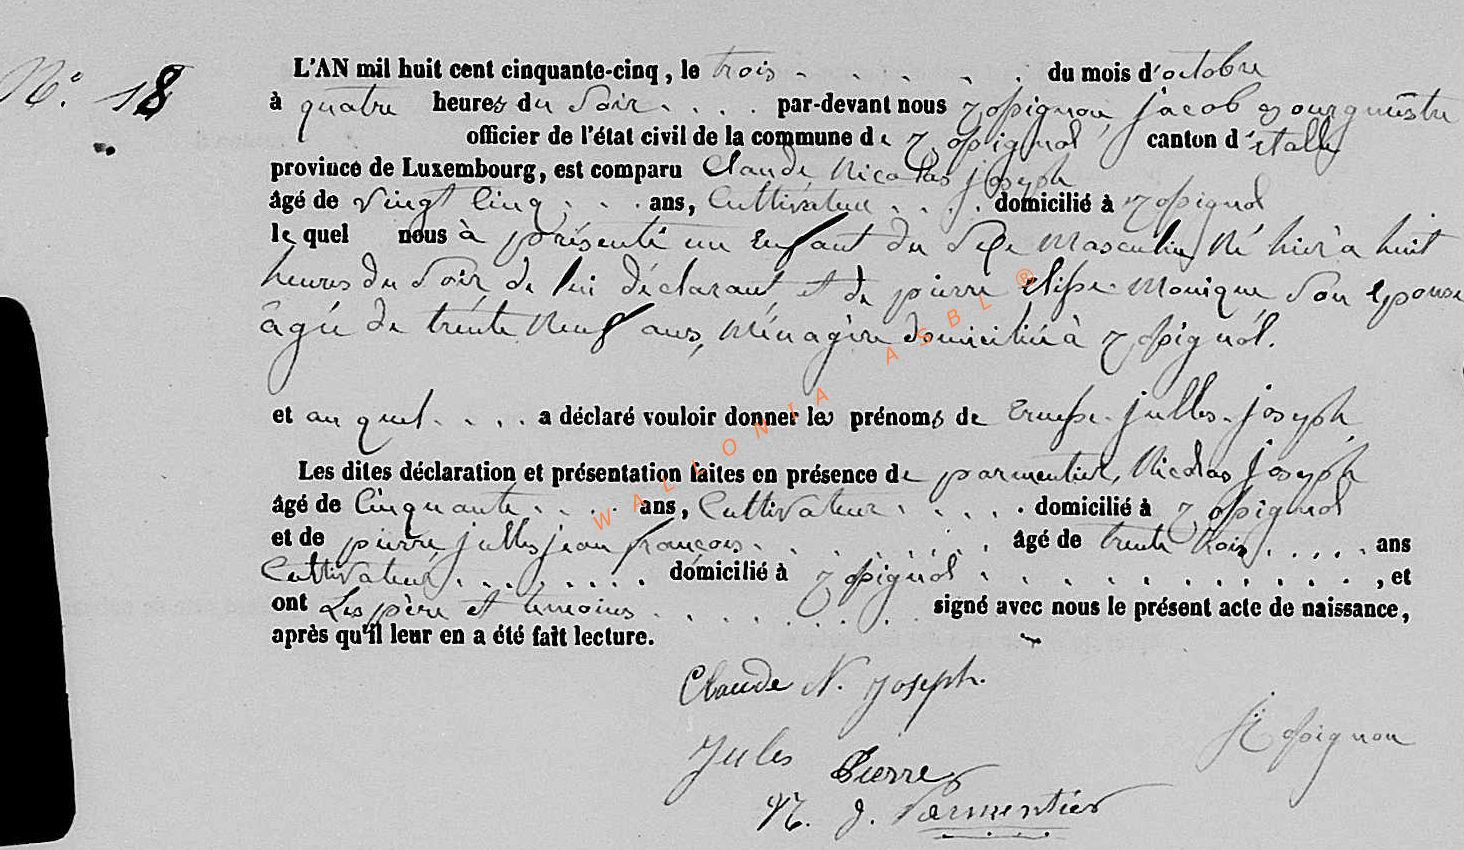 N.º 18
L'AN mil huit cent cinquante-cinq, le trois . . . . . du mois d'octobre
à quatre heures du Soir . . . . par-devant nous Zopignon, jacob Bourgmestre
officier de l'état civil de la commune de Ropignol canton d'étalle
province de Luxembourg, est comparu Claude, Nicolas joseph
âgé de vingt Cinq . . . ans, Cultivateur . . . . domicilié à
le quel nous à présenté un Enfant du Sexe Masculin, Né hier à huit
heures du Soir de lui déclarant, et de pierre Monique Son Epouse
âgée de trente Neuf ans, Ménagère domiciliée à
et au quel . . . . a déclaré vouloir donner les prénoms de julles joseph
Les dites déclaration et présentation faites en présence de parmentier, Nicolas joseph
âgé de Cinquante . . . . ans, Cultivateur . . . . . domicilié à
et de pierre julles jean françois . . . . . . . . âgé de trente trois . . . . . ans
Cultivateur . . . . . . . . domicilié à . . . . . . . . . . . . , et
ont Les père et temoins . . . . . . . . signé avec nous le présent acte de naissance,
après qu'il leur en a été fait lecture.
Claude N. Joseph.
Jules Pierre
N. J. Parmentier
WALLONIA ASBL ®